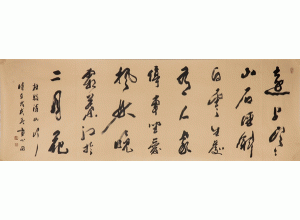 遠上寒
山石徑斜
白雲生處
有人家
停車坐愛
楓林晚
霜葉紅於
二月花
杜牧詩山行
時在戊戌